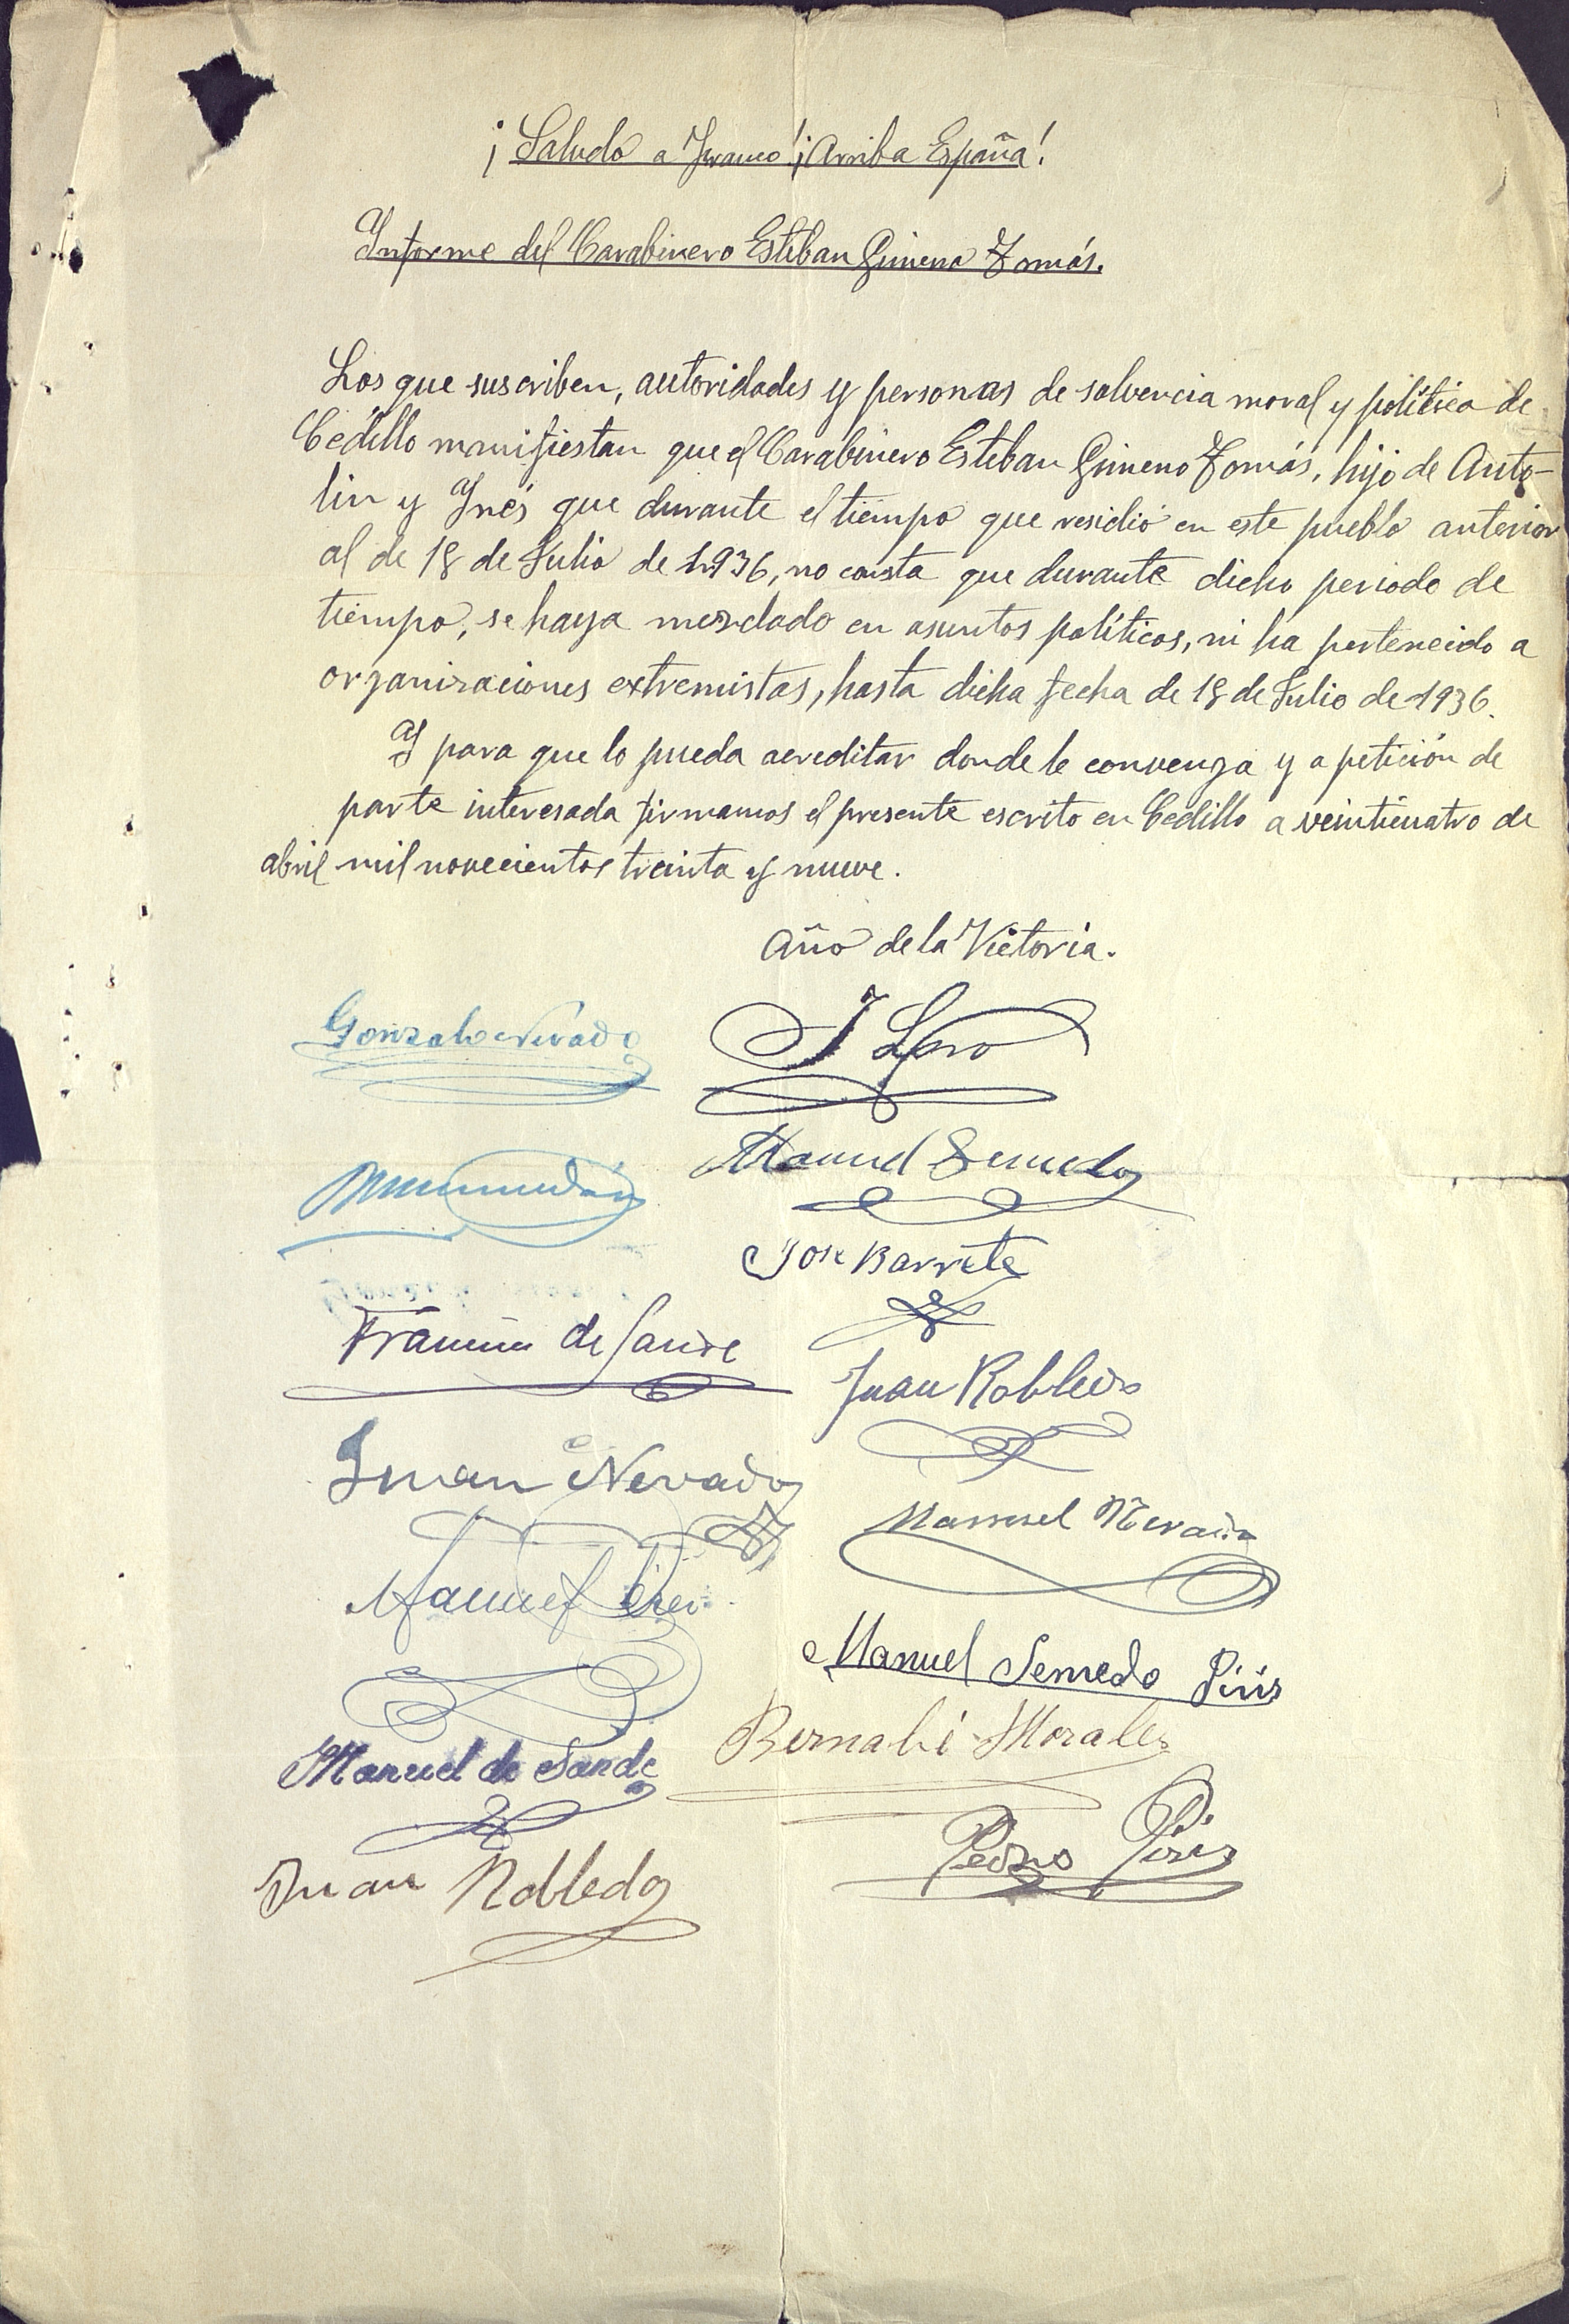 ¡Saludo a Franco! ¡Arriba España!
Informe del Carabinero Esteban Gimeno Tomás.
Los que suscriben, autoridades y personas de solvencia moral y política de
Cedillo manifiestan que el Carabinero Esteban Gimeno Tomás, hijo de Anto-
lin y Inés que durante el tiempo que residió en este pueblo anterior
al de 18 de Julio de 1936, no consta que durante dicho periodo de
tiempo, se haya mezclado en asuntos políticos, ni ha pertenecido a
organizaciones extremistas, hasta dicha fecha de 18 de Julio de 1936.
Y para que lo pueda acreditar donde le convenga y a petición de
parte interesada firmamos el presente escrito en Cedillo a veinticuatro de
abril mil novecientos treinta y nueve.
Año de la Victoria.
Gonzalo Nevado
J
Manuel Semedo
Jose Barrete
de Sande
Juan Robledo
Juan Nevado
Manuel Nevado
Manuel
Manuel Semedo Píriz
Bernabé Morales
Manuel de Sande
Pedro Píriz
Juan Robledo